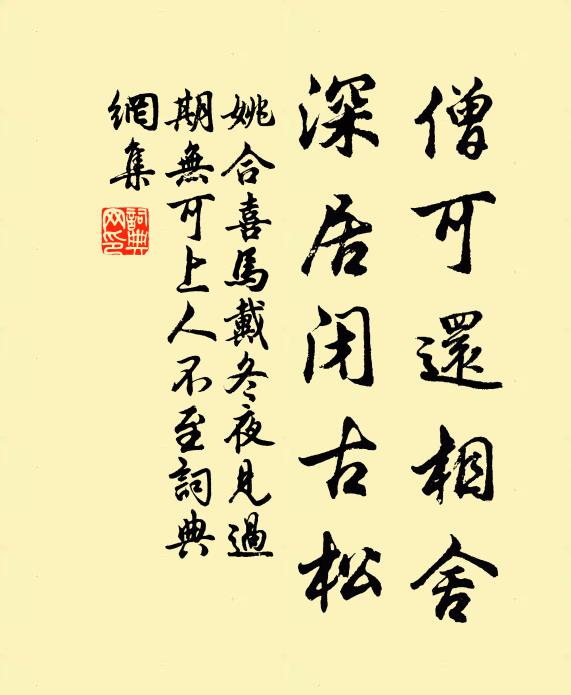 僧可還相舍
深居闭古松
姚合喜馬戴冬夜見過
期無可上人不至詞典
網集
詞典网印